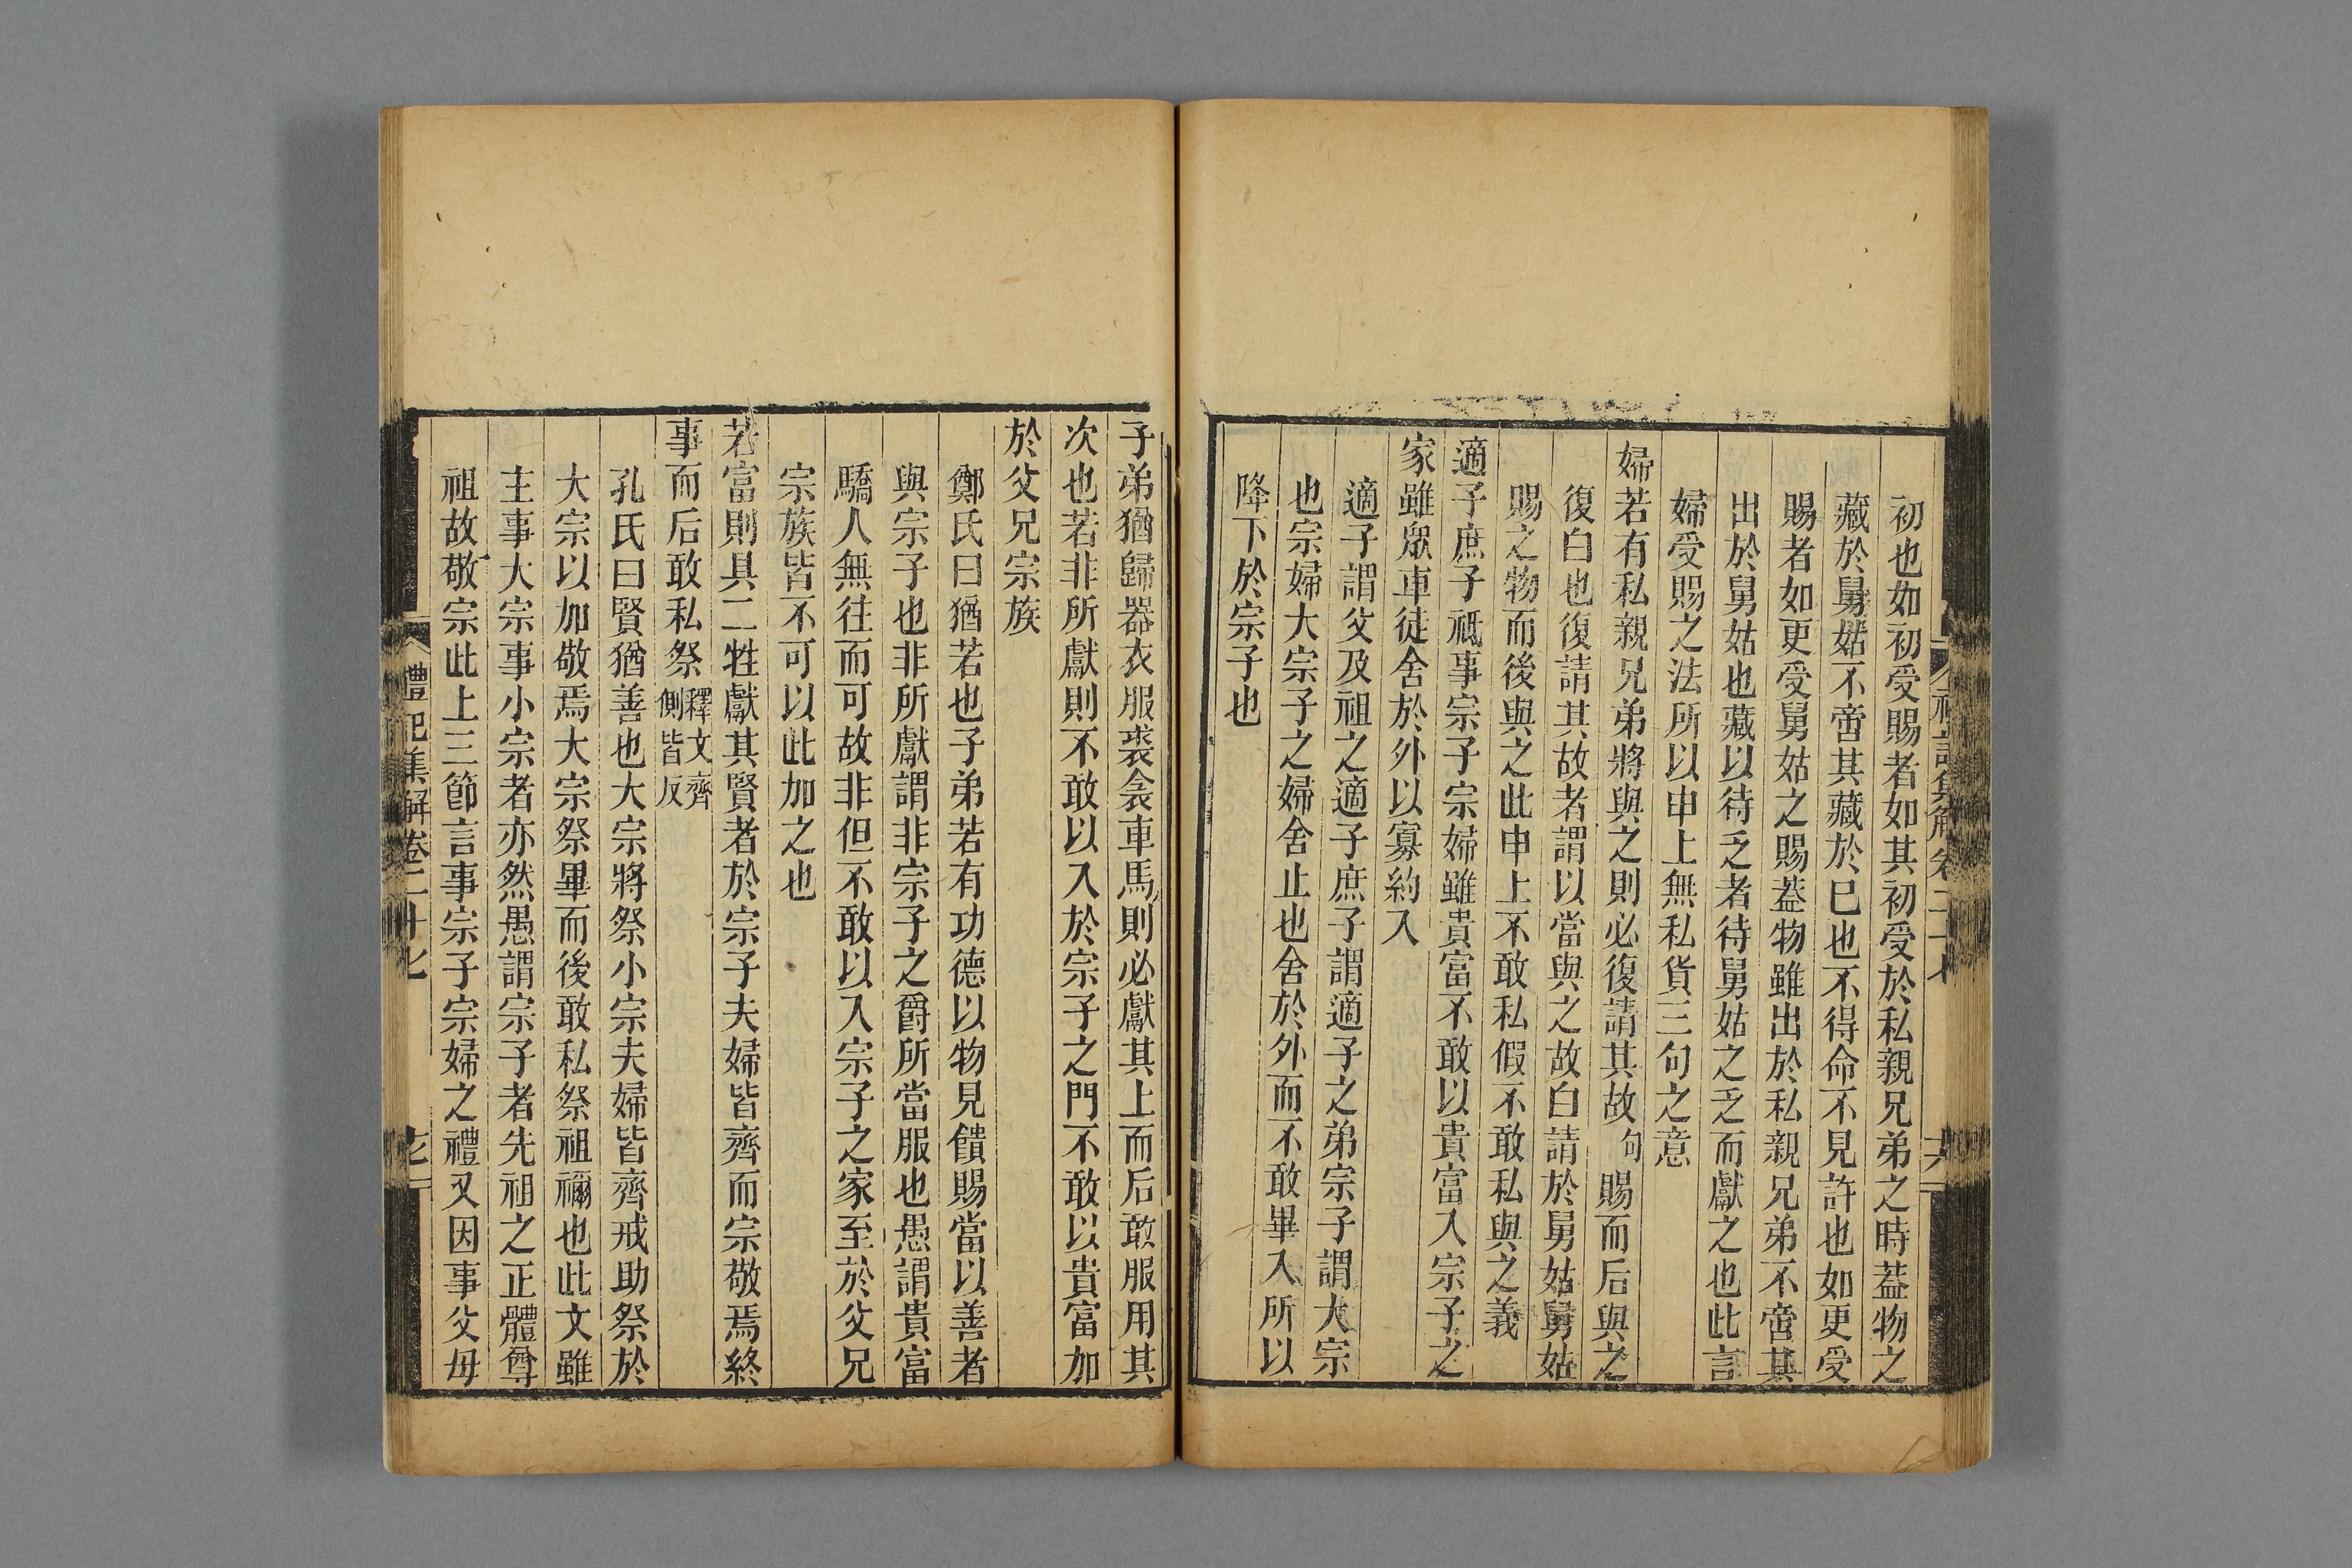 初也如初受賜者如其初受於私親兄弟之時葢物之
藏於舅姑不啻其藏於巳也不得命不見許也如更受
賜者如更受舅姑之賜葢物雖出於私親兄弟不啻其
出於舅姑也藏以待乏者待舅姑之乏而獻之也此言
婦受賜之法所以申上無私貨三句之意
婦若有私親兄弟將與之則必復請其故句賜而后與之
復白也復請其故者謂以當與之故白請於舅姑舅姑
賜之物而後與之此申上不敢私假不敢私與之義
適子庶子祗事宗子宗婦雖貴富不敢以貴富入宗子之
家雖眾車徒舍於外以寡約入
適子謂父及祖之適子庶子謂適子之弟宗子謂大宗
也宗婦大宗子之婦舍止也舍於外而不敢畢入所以
降下於宗子也
子弟猶歸器衣服裘衾車馬則必獻其上而后敢服用其
次也若非所獻則不敢以入於宗子之門不敢以貴富加
於父兄宗族
鄭氏曰猶若也子弟若有功德以物見饋賜當以善者
與宗子也非所獻謂非宗子之爵所當服也愚謂貴富
驕人無往而可故非但不敢以入宗子之家至於父兄
宗族皆不可以此加之也
若富則具二牲獻其賢者於宗子夫婦皆齊而宗敬焉終
事而后敢私祭釋文齊側皆反
孔氏曰賢猶善也大宗將祭小宗夫婦皆齊戒助祭於
大宗以加敬焉大宗祭畢而後敢私祭祖禰也此文雖
主事大宗事小宗者亦然愚謂宗子者先祖之正體尊
祖故敬宗此上三節言事宗子宗婦之禮又因事父母
禮記集解卷二十七